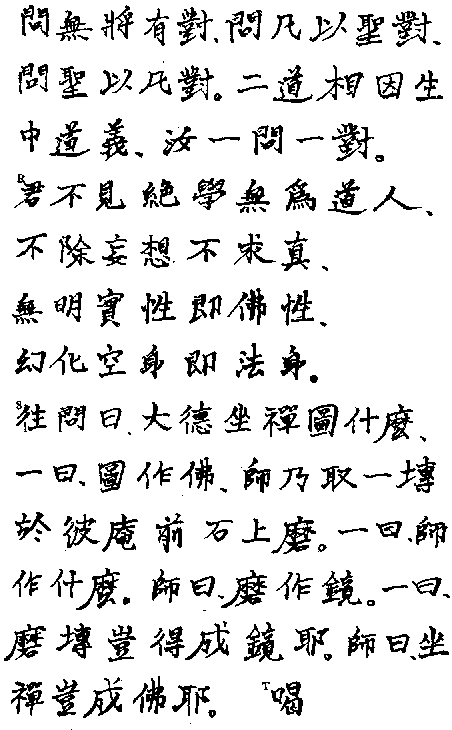 問無將有對、問凡以聖對、
問聖以凡對。二道相因生
中道義、汝一問一對。
R君不見絕學無為道人、
不除妄想不求真、
無明實性即佛性、
幻化空身即法身。
S往問曰、大德坐禪圖什麼、
一曰、圖作佛、師乃取一塼
於彼庵前石上磨。一曰、師
作什麼。師曰、磨作鏡。一曰、
磨塼豈得成鏡耶。師曰、坐
禪豈成佛耶。 T喝